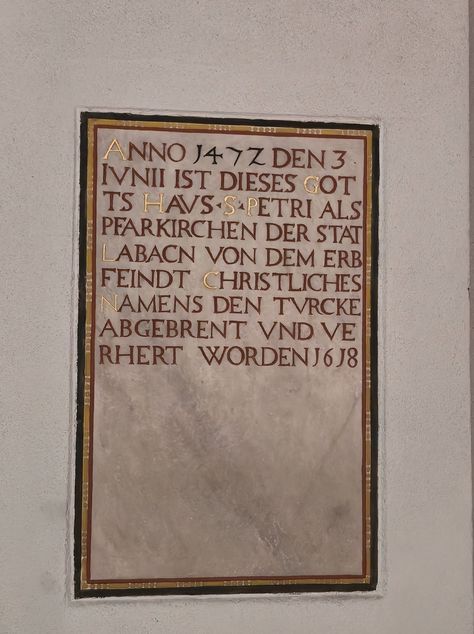 ANNO 1472 DEN 3
IVNII IST DIESES GOT
TS HAVS · S · PETRI ALS
PFARKIRCHEN DER STAT
LABACN VON DEM ERB
FEINDT CHRISTLICHES
NAMENS DEN TVRCKE
ABGEBRENT VND VE
RHERT WORDEN 1618